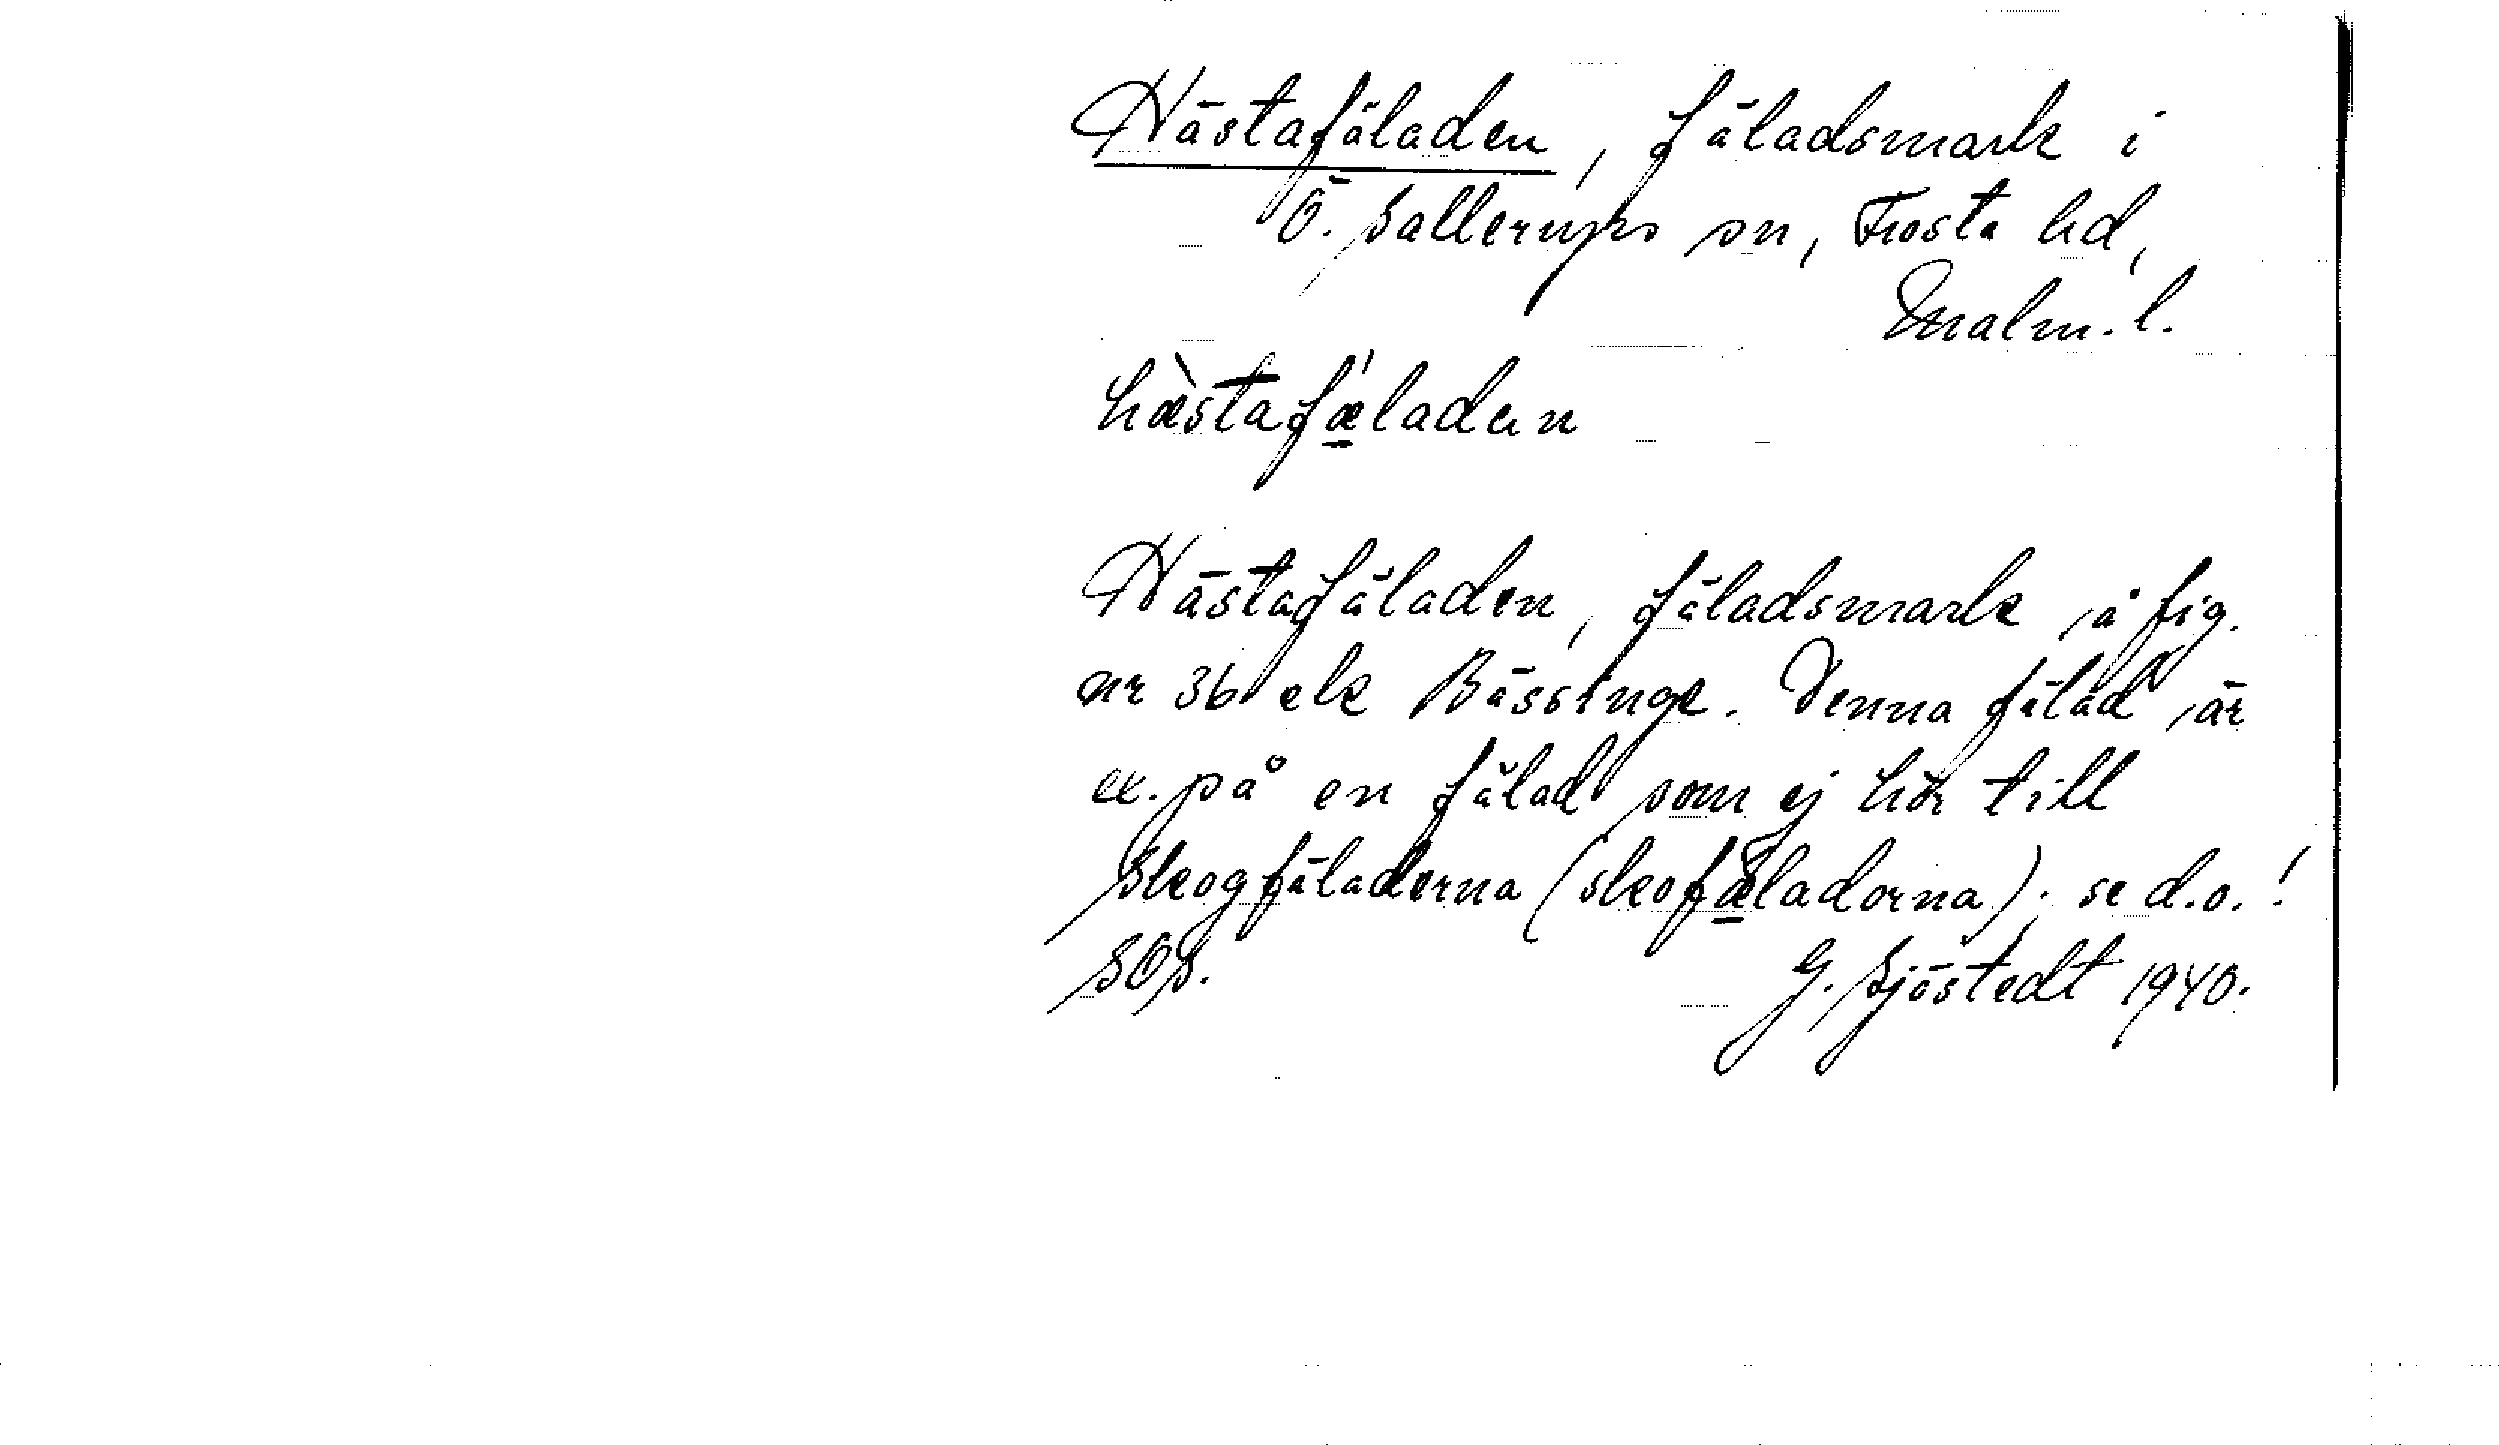 Hästafäladen, fäladsmark i
Ö. Sallerups sn, Frosta hd,
Malm. l.
hæ̀stafǽ̲laden
Hästafäladen, fäladsmark å fig.
nr 36 ek Bässinge. Denna fälad är
ex. på en fälad som ej hör till
Skogfäladerna (skofæ̲ladorna). se d.o.!
SOS. G. Sjöstedt 1940.